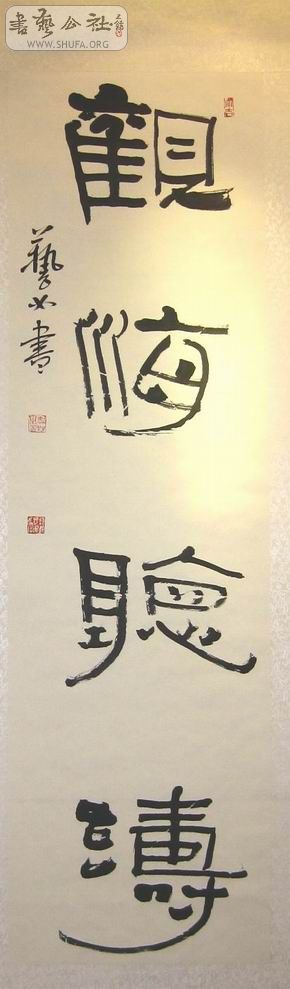 書藝公社
WWW.SHUFA.ORG
觀海聽濤
藝公書